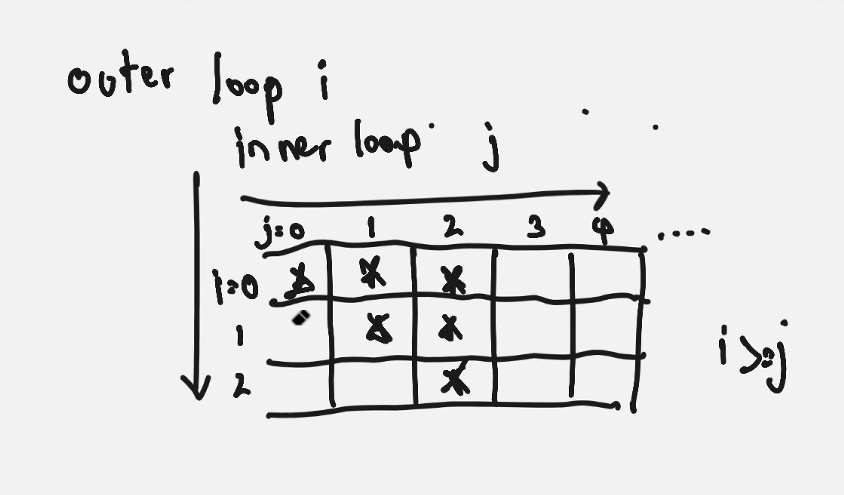 outer loop i
inner loop j
j=0 1 2 3 4 .....
i=0 * * *
1 * *
2 *
i>=j